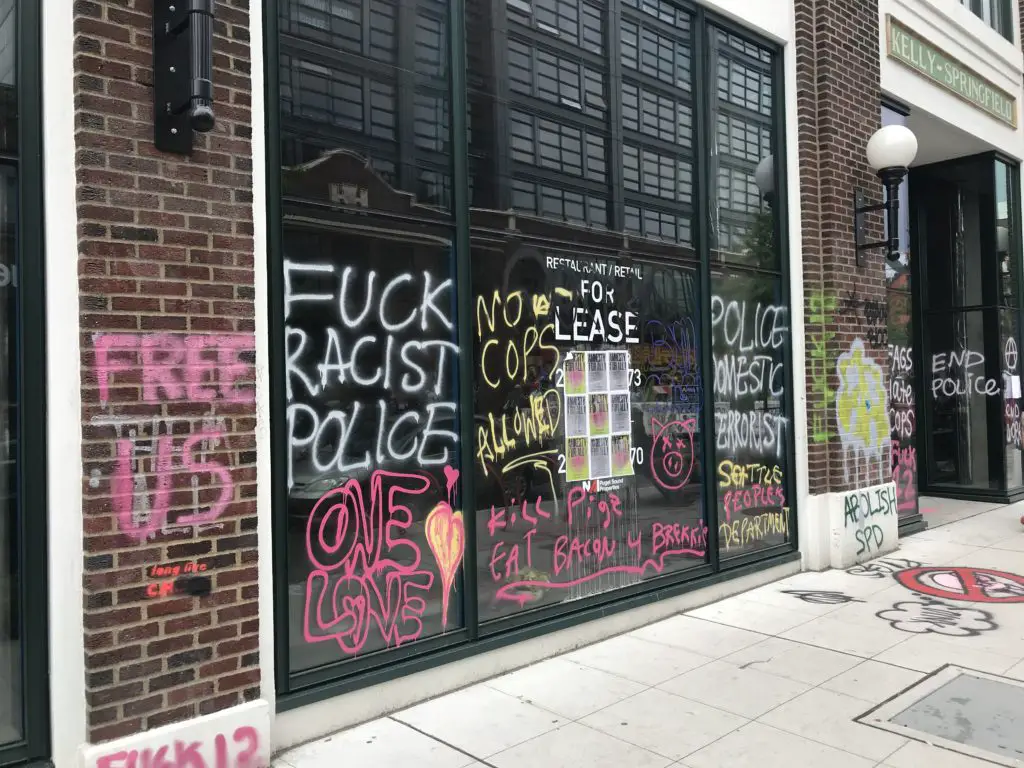 FREE
US
long live
FUCK 12
FUCK
RACIST
POLICE
ONE
LOVE
NO
COPS
ALLOWED
RESTAURANT / RETAIL
FOR
LEASE
73
70
Puget Sound
Properties
Kill Pigs
EAT BACON 4 BREKKIE
POLICE
DOMESTIC
TERRORIST
SEATTLE
PEOPLE'S
DEPARTMENT
KELLY-SPRINGFIELD
FAGS
Hate
COPS
FUCK
12
ABOLISH
SPD
END
POLICE